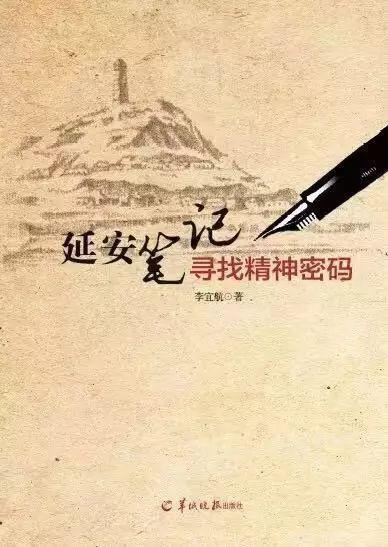 延安笔记
寻找精神密码
李宜航⊙著
羊城晚报出版社